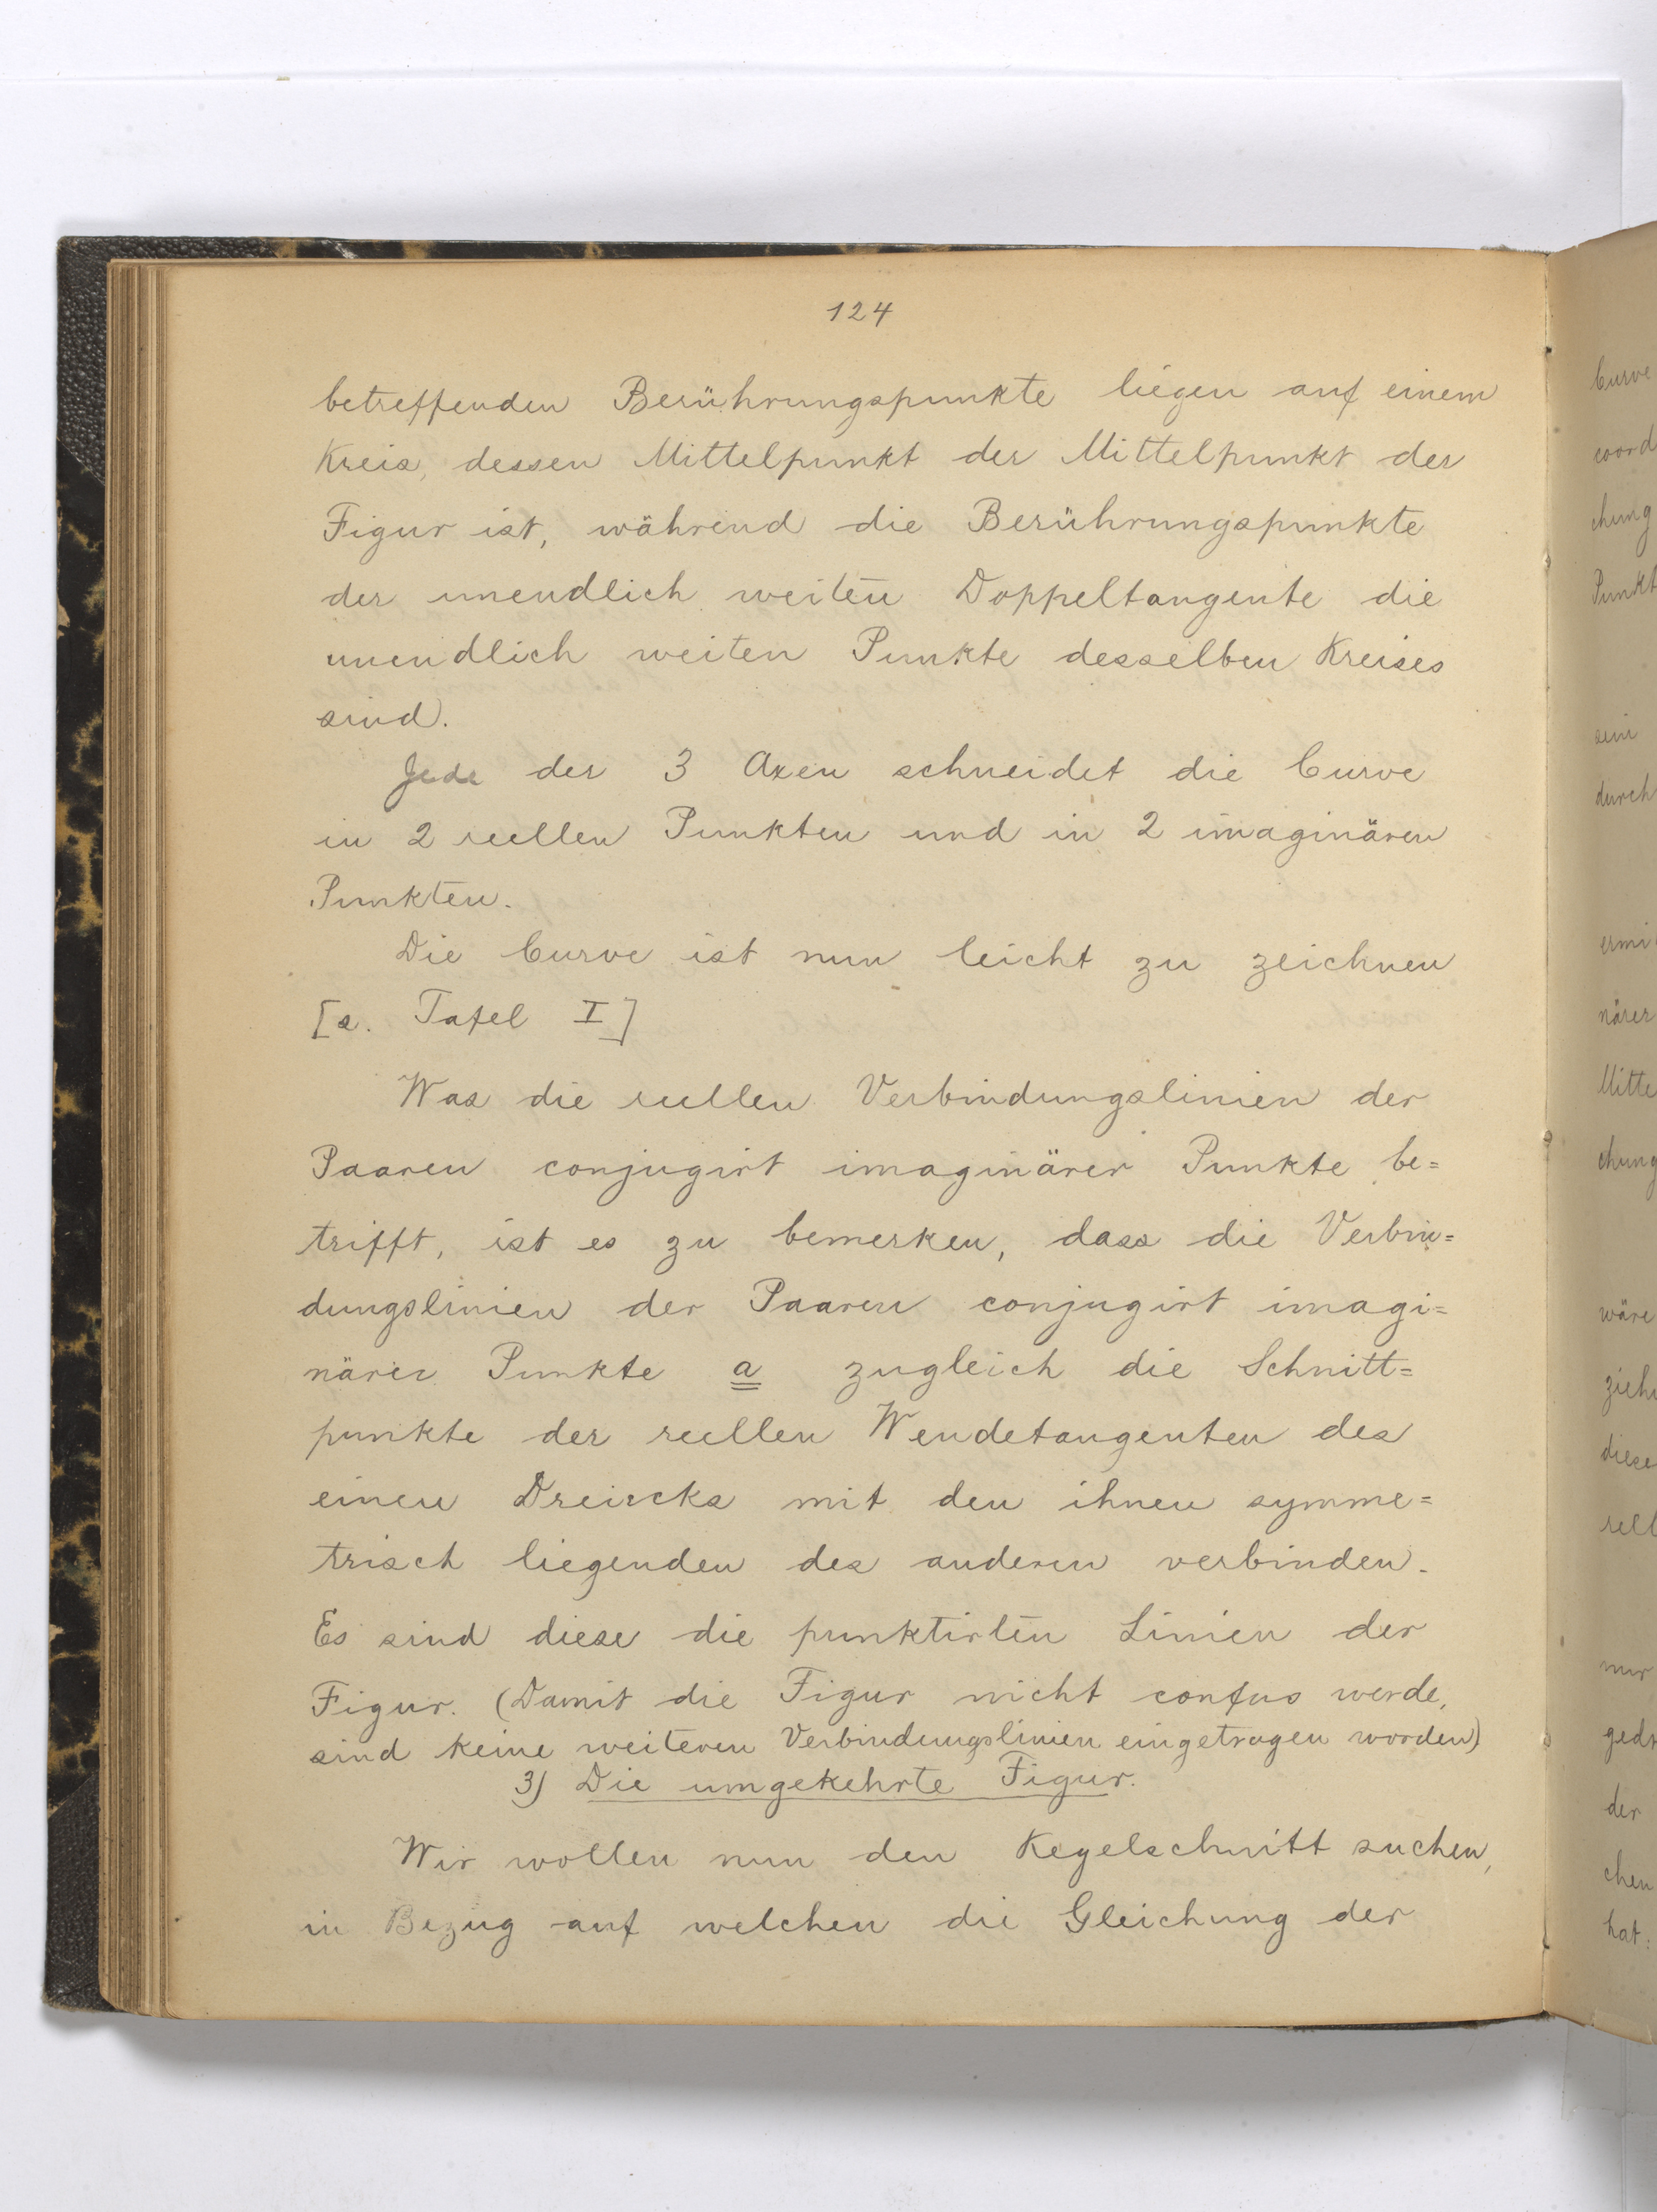 124
betreffenden Berührungspunkte liegen auf einem
Kreis, dessen Mittelpunkt der Mittelpunkt der
Figur ist, während die Berührungspunkte
der unendlich weiten Doppeltangente die
unendlich weiten Punkte desselben Kreises
sind.
Jede der 3 Axen schneidet die Curve
in 2 reellen Punkten und in 2 imaginären
Punkten.
Die Curve ist nun leicht zu zeichnen
[s. Tafel I]
Was die reellen Verbindungslinien der
Paaren conjugirt imaginärer Punkte be=
trifft, ist es zu bemerken, dass die Verbin=
dungslinien der Paaren conjugirt imagi=
närer Punkte a zugleich die Schnitt=
punkte der reellen Wendetangenten des
einen Dreiecks mit den ihnen symme=
trisch liegenden des anderen verbinden.
Es sind diese die punktirten Linien der
Figur. (Damit die Figur nicht confus werde,
sind keine weiteren Verbindungslinien eingetragen worden)
3) Die umgekehrte Figur.
Wir wollen nun den Kegelschnitt suchen,
in Bezug auf welchen die Gleichung der
Curve
coord
chung
Punkt
sein
durch
ermi
närer
Mitte
chung
wäre
ziehe
diese
nur
gedr
der
chen
hat: